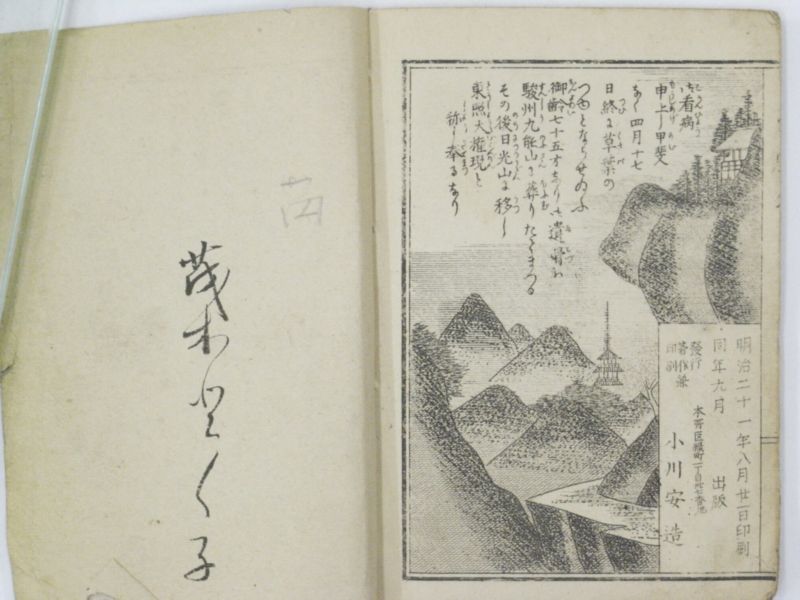 御看病
申上し甲斐
なく四月十七
日終に草葉の
つゆとならせ給ふ
御齢七十五才なり御遺骨は
駿州九能山に葬りたてまつる
その後日光山に移し
東照大権現と
称し奉るなり
明治二十一年八月廿一日印刷
同年九月 出版
発行
著作兼
印刷
小川安造
茂木とく子